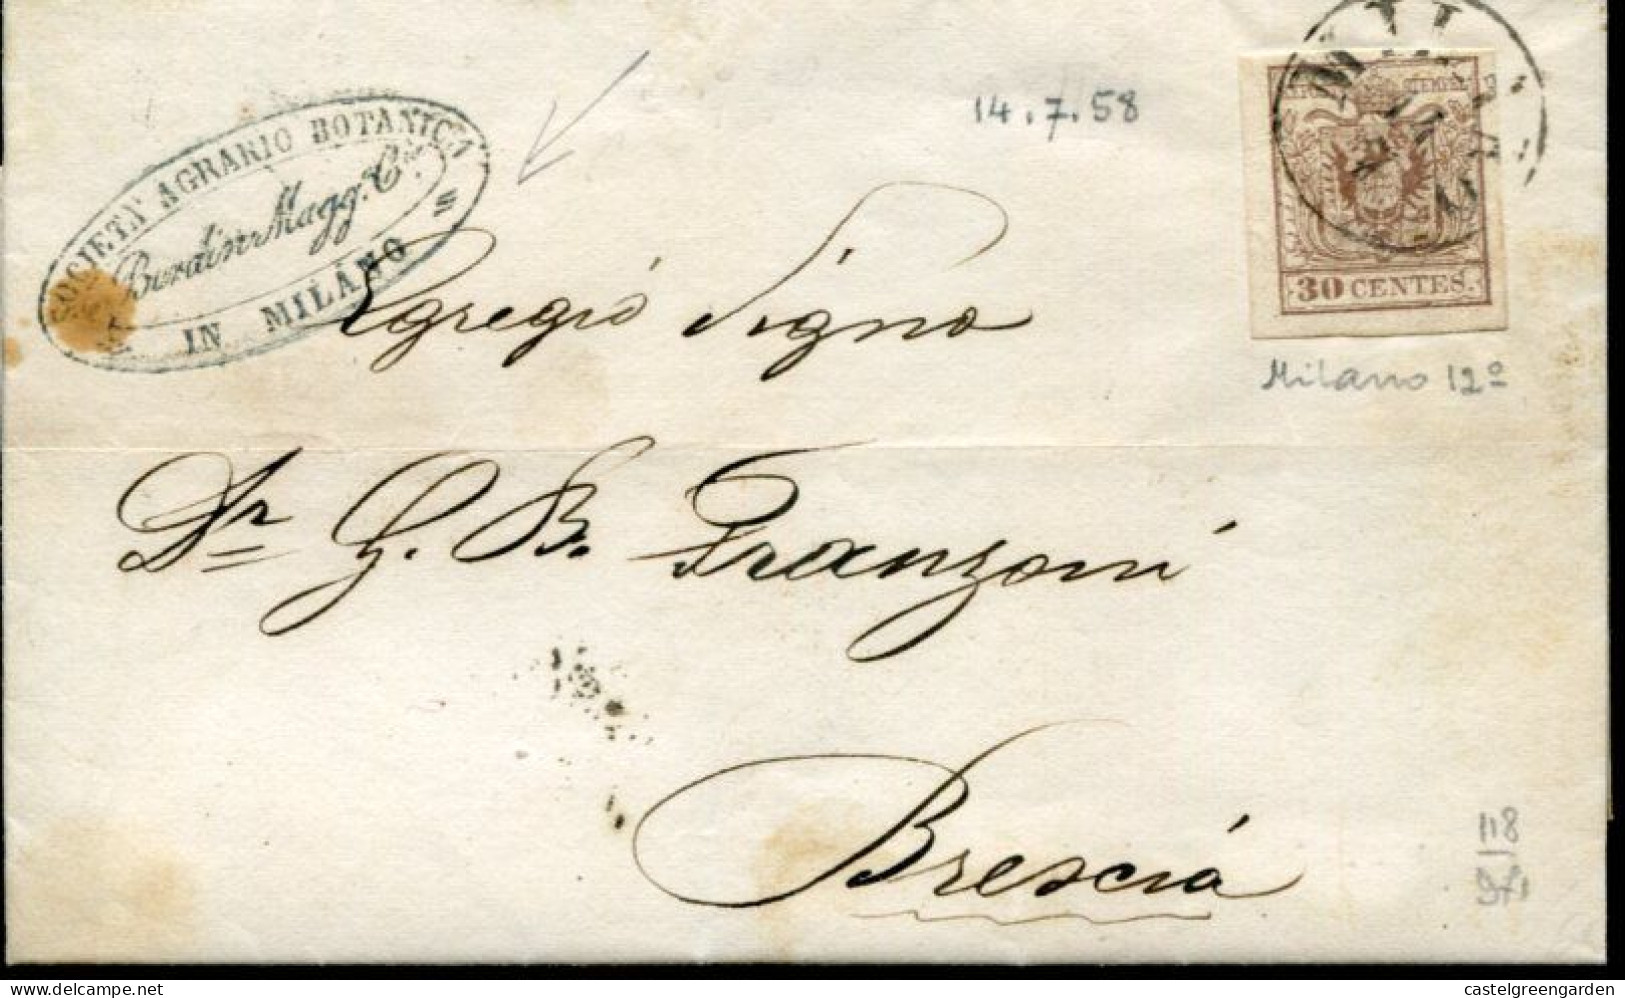 SOCIETA' AGRARIO BOTANICA
Burdin Magg. e C.ia
IN MILANO
14.7.58
MIL
STEMPEL
30 CENTES.
Milano 12º
Egregio Signo
Dr G. B. Franzoni
Brescia
118
delcampe.net
castelgreengarden